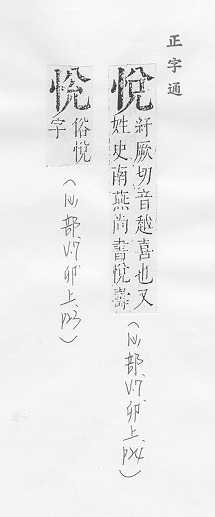 正字通
悅
紆厥切音越喜也又
姓史南燕尚書悅壽
(心部、V.7、卯上、p24)
悦
俗悅
字
(心部、V.7、卯上、p23)